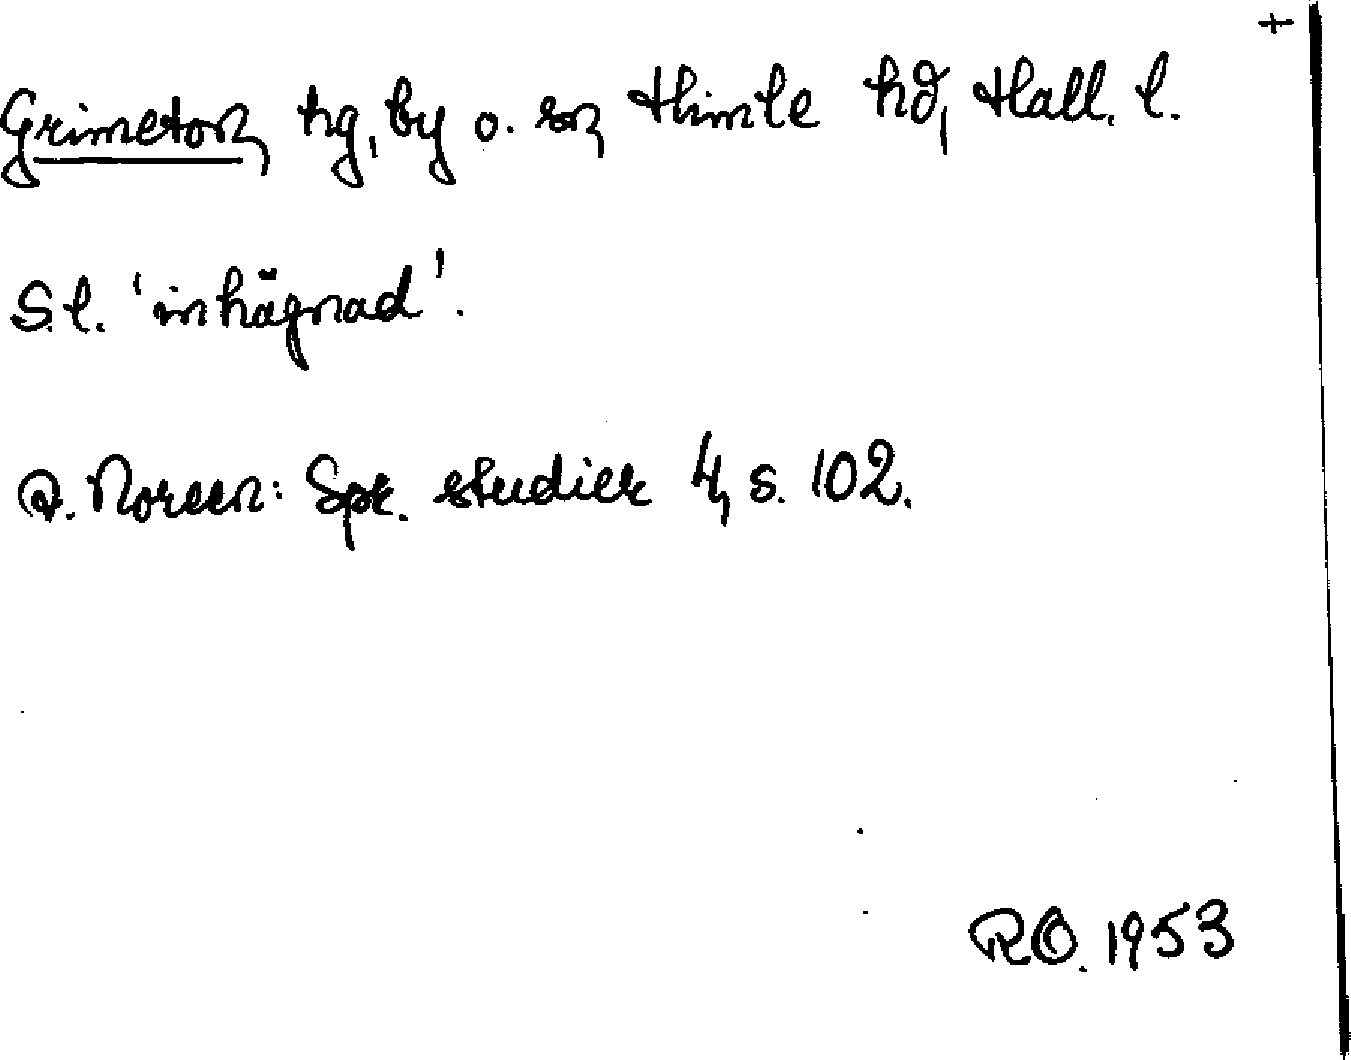 +
Grimeton, kg, by o. sn, Himle hd, Hall. l.
S.l. 'inhägnad'.
A. Noreen: Spr. studier 4, s. 102.
RO. 1953